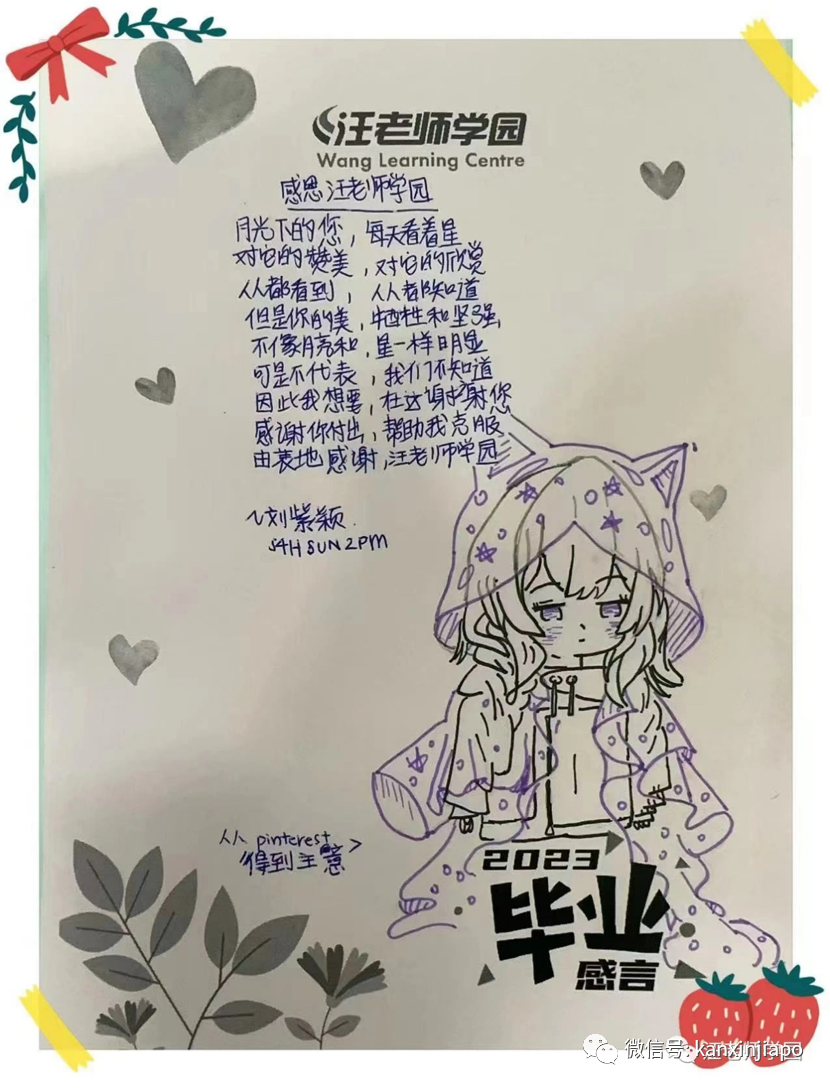 汪老师学园
Wang Learning Centre
感思汪老师学园
月光下的您，每天看着星
对它的赞美，对它的欣赏
人人都看到，人人都知道
但是你的美，牺牲和坚强
不像月亮和，星一样明显
可是不代表，我们不知道
因此我想要，在这谢谢您
感谢你付出，帮助我克服
由衷地感谢，汪老师学园
~刘紫颖.
S4H SUN 2PM
从 pinterest
得到主意 >
2023
感言
微信号: kanxinjiapo
汪老师学园